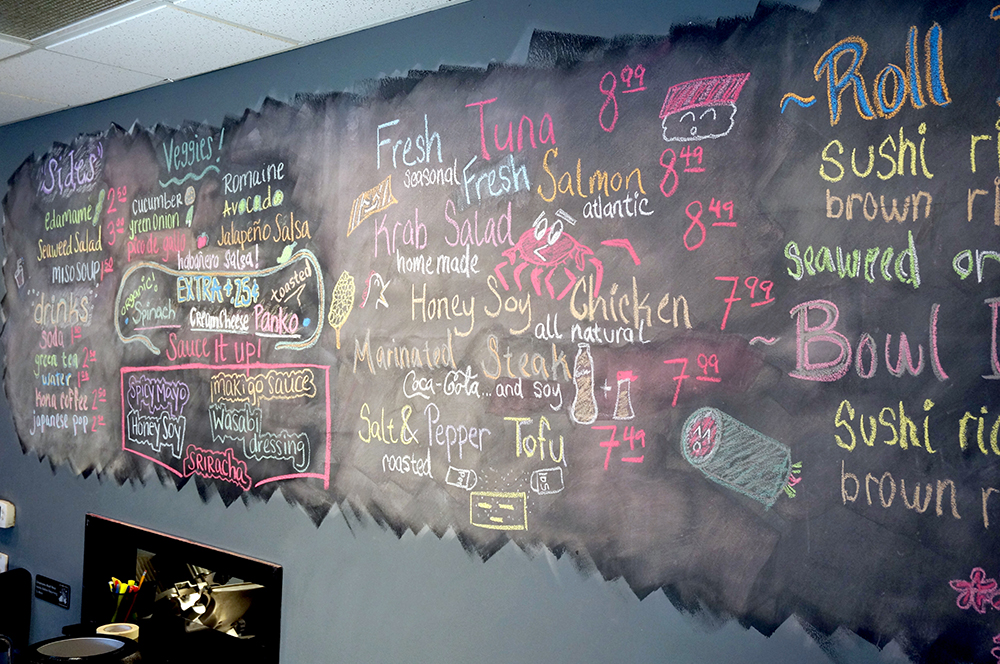 Sides
edamame 2.50
Seaweed Salad 3.95
miso soup
drinks
soda
green tea
water
kona coffee
japanese pop
Veggies!
cucumber
green onion
pico de gallo
Romaine
Avocado
Jalapeño Salsa
habañero salsa!
organic!
Spinach
EXTRA + 25¢
Cream Cheese
toasted
Panko
Sauce it up!
Spicy Mayo
Honey Soy
makigo sauce
Wasabi
dressing
Sriracha
Fresh Tuna 8.99
seasonal
Fresh Salmon 8.49
atlantic
Krab Salad 8.49
home made
Honey Soy Chicken 7.99
all natural
Marinated Steak 7.99
Coca-Cola... and soy
Salt & Pepper Tofu 7.49
roasted
~Roll
sushi ri
brown r
seaweed or
~Bowl
Sushi ric
brown r